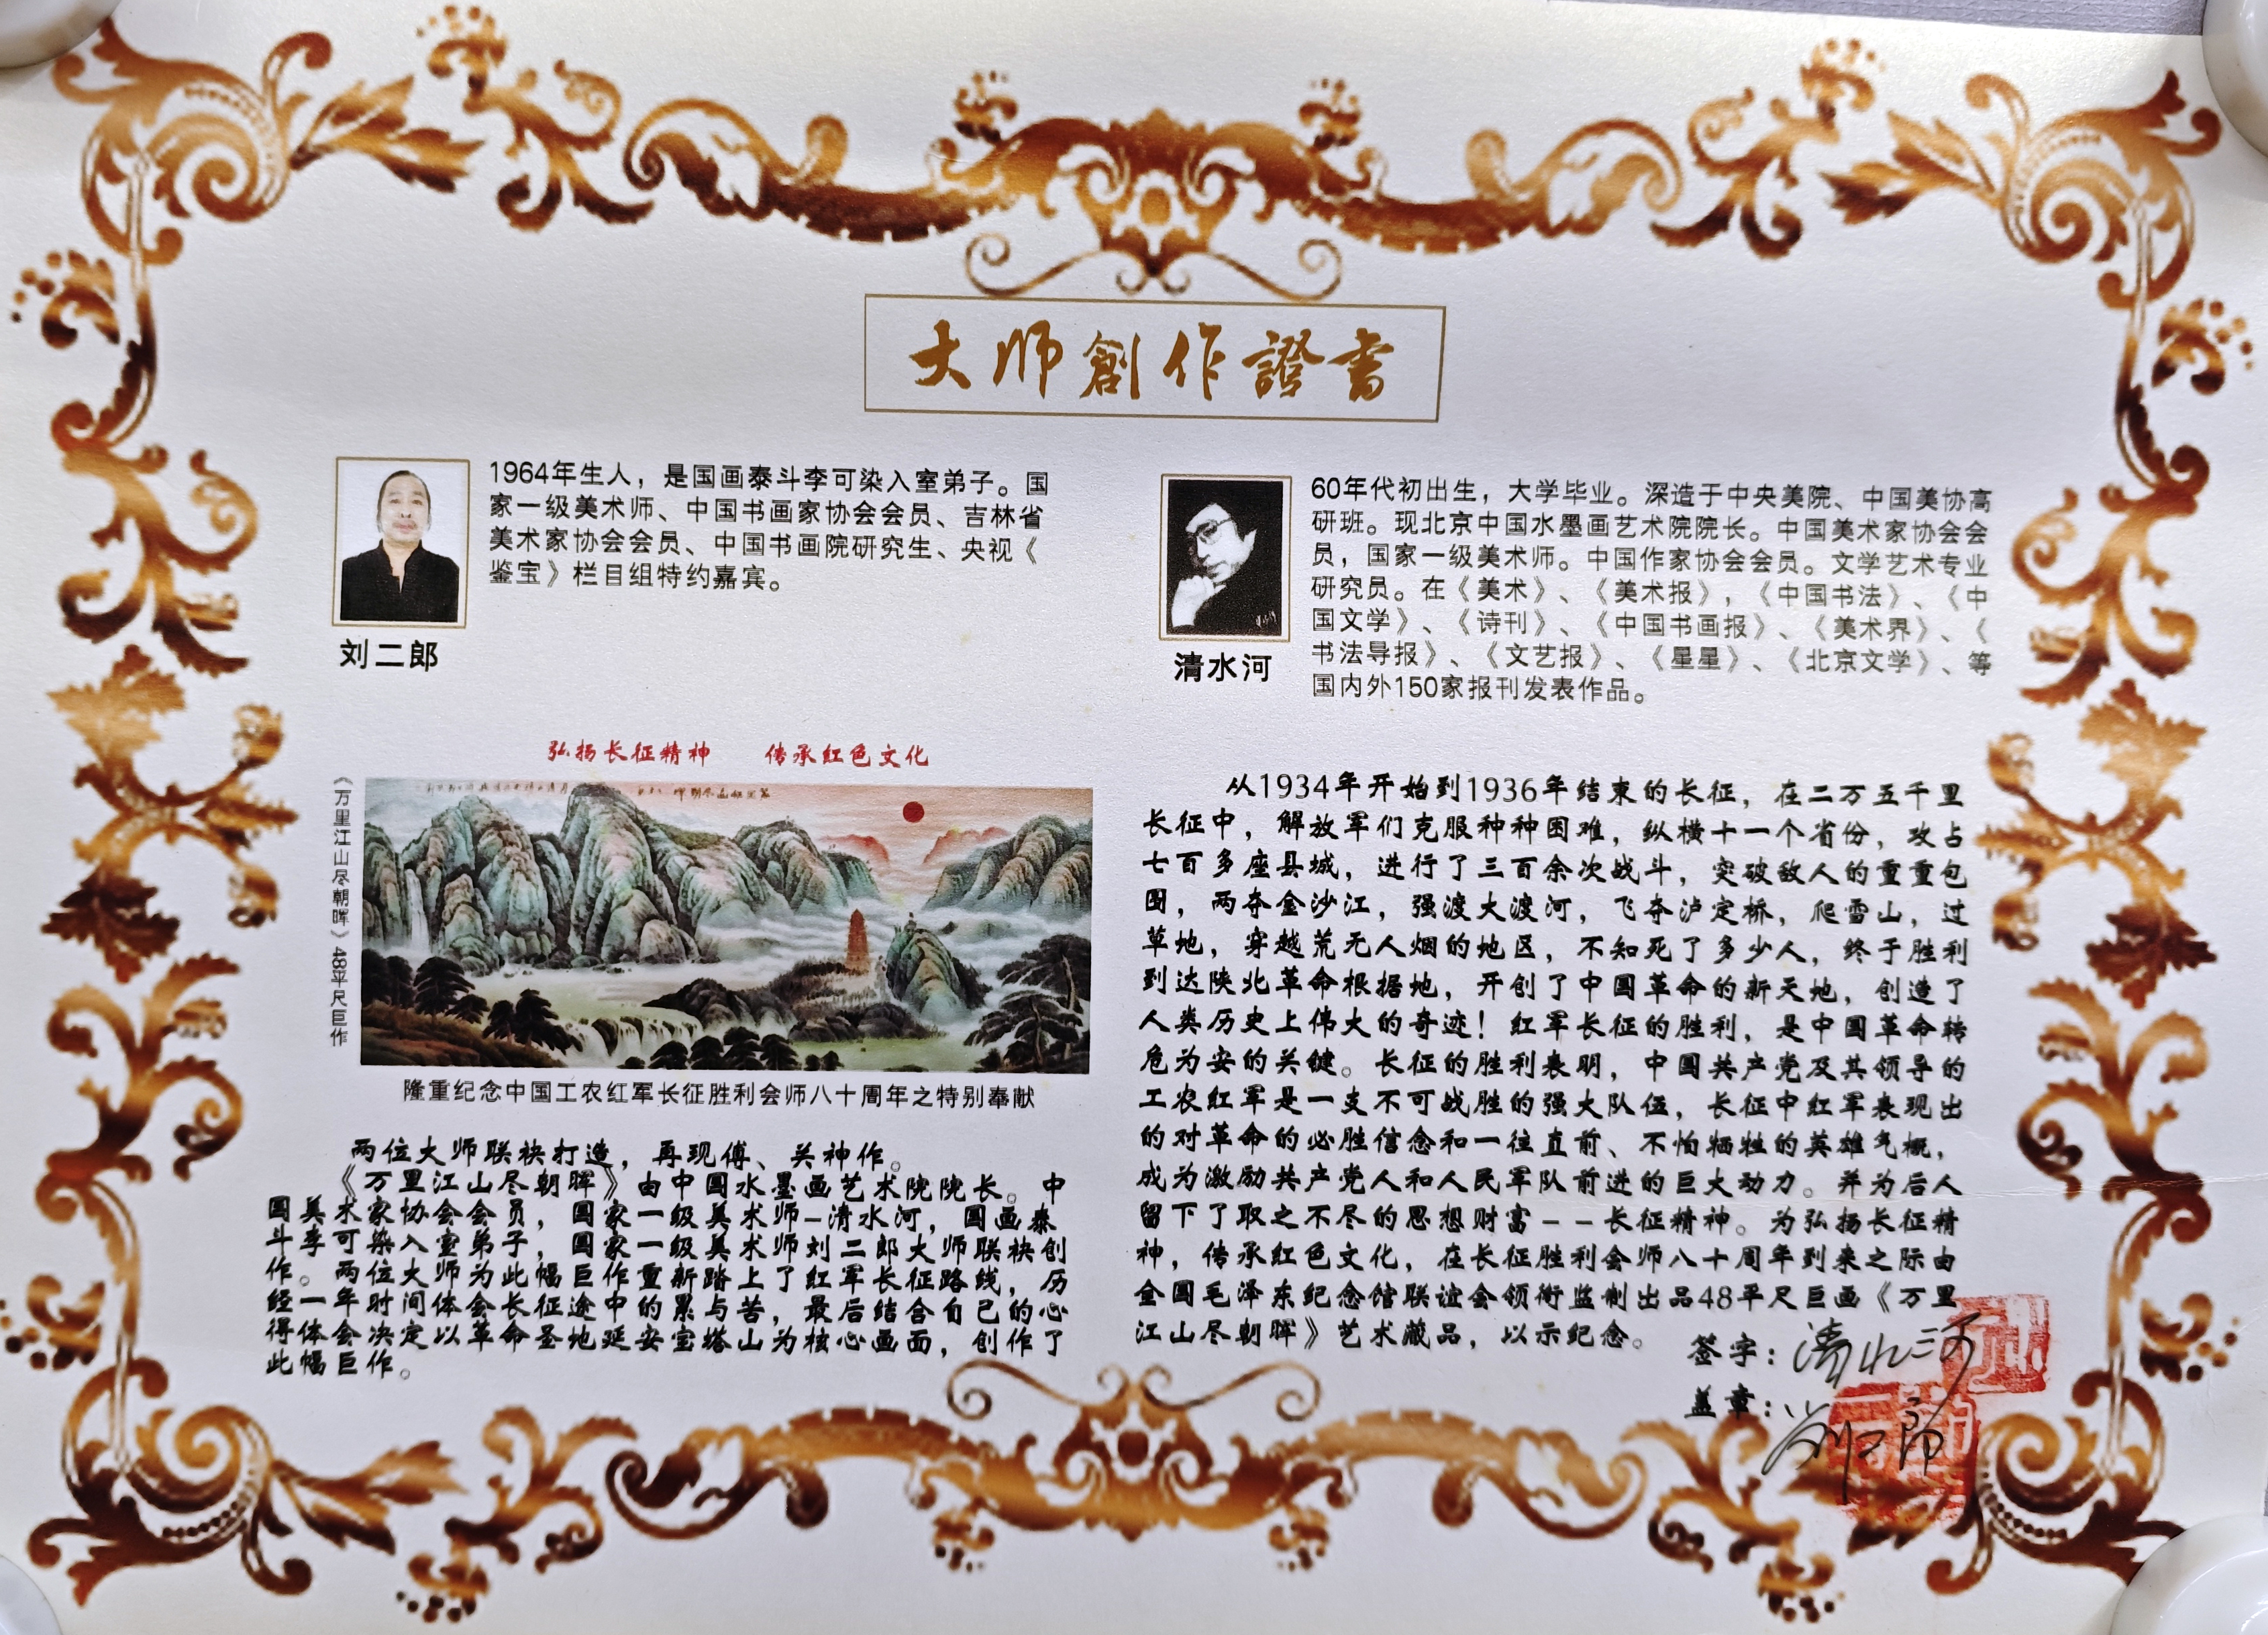 大师創作證書
1964年生人，是国画泰斗李可染入室弟子。国
家一级美术师、中国书画家协会会员、吉林省
美术家协会会员、中国书画院研究生、央视《
鉴宝》栏目组特约嘉宾。
刘二郎
60年代初出生，大学毕业。深造于中央美院、中国美协高
研班。现北京中国水墨画艺术院院长。中国美术家协会会
员，国家一级美术师。中国作家协会会员。文学艺术专业
研究员。在《美术》、《美术报》，《中国书法》、《中
国文学》、《诗刊》、《中国书画报》、《美术界》、《
书法导报》、《文艺报》、《星星》、《北京文学》、等
国内外150家报刊发表作品。
清水河
弘扬长征精神 传承红色文化
《万里江山尽朝晖》48平尺巨作
隆重纪念中国工农红军长征胜利会师八十周年之特别奉献
两位大师联袂打造，再现傅、关神作。
《万里江山尽朝晖》由中国水墨画艺术院院长。中
国美术家协会会员，国家一级美术师-清水河，国画泰
斗李可染入室弟子，国家一级美术师刘二郎大师联袂创
作。两位大师为此幅巨作重新踏上了红军长征路线，历
经一年时间体会长征途中的累与苦，最后结合自己的心
得体会决定以革命圣地延安宝塔山为核心画面，创作了
此幅巨作。
从1934年开始到1936年结束的长征，在二万五千里
长征中，解放军们克服种种困难，纵横十一个省份，攻占
七百多座县城，进行了三百余次战斗，突破敌人的重重包
围，两夺金沙江，强渡大渡河，飞夺泸定桥，爬雪山，过
草地，穿越荒无人烟的地区，不知死了多少人，终于胜利
到达陕北革命根据地，开创了中国革命的新天地，创造了
人类历史上伟大的奇迹！红军长征的胜利，是中国革命转
危为安的关键。长征的胜利表明，中国共产党及其领导的
工农红军是一支不可战胜的强大队伍，长征中红军表现出
的对革命的必胜信念和一往直前、不怕牺牲的英雄气概，
成为激励共产党人和人民军队前进的巨大动力。并为后人
留下了取之不尽的思想财富--长征精神。为弘扬长征精
神，传承红色文化，在长征胜利会师八十周年到来之际由
全国毛泽东纪念馆联谊会领衔监制出品48平尺巨画《万里
江山尽朝晖》艺术藏品，以示纪念。
签字：清水河
盖章：刘二郎